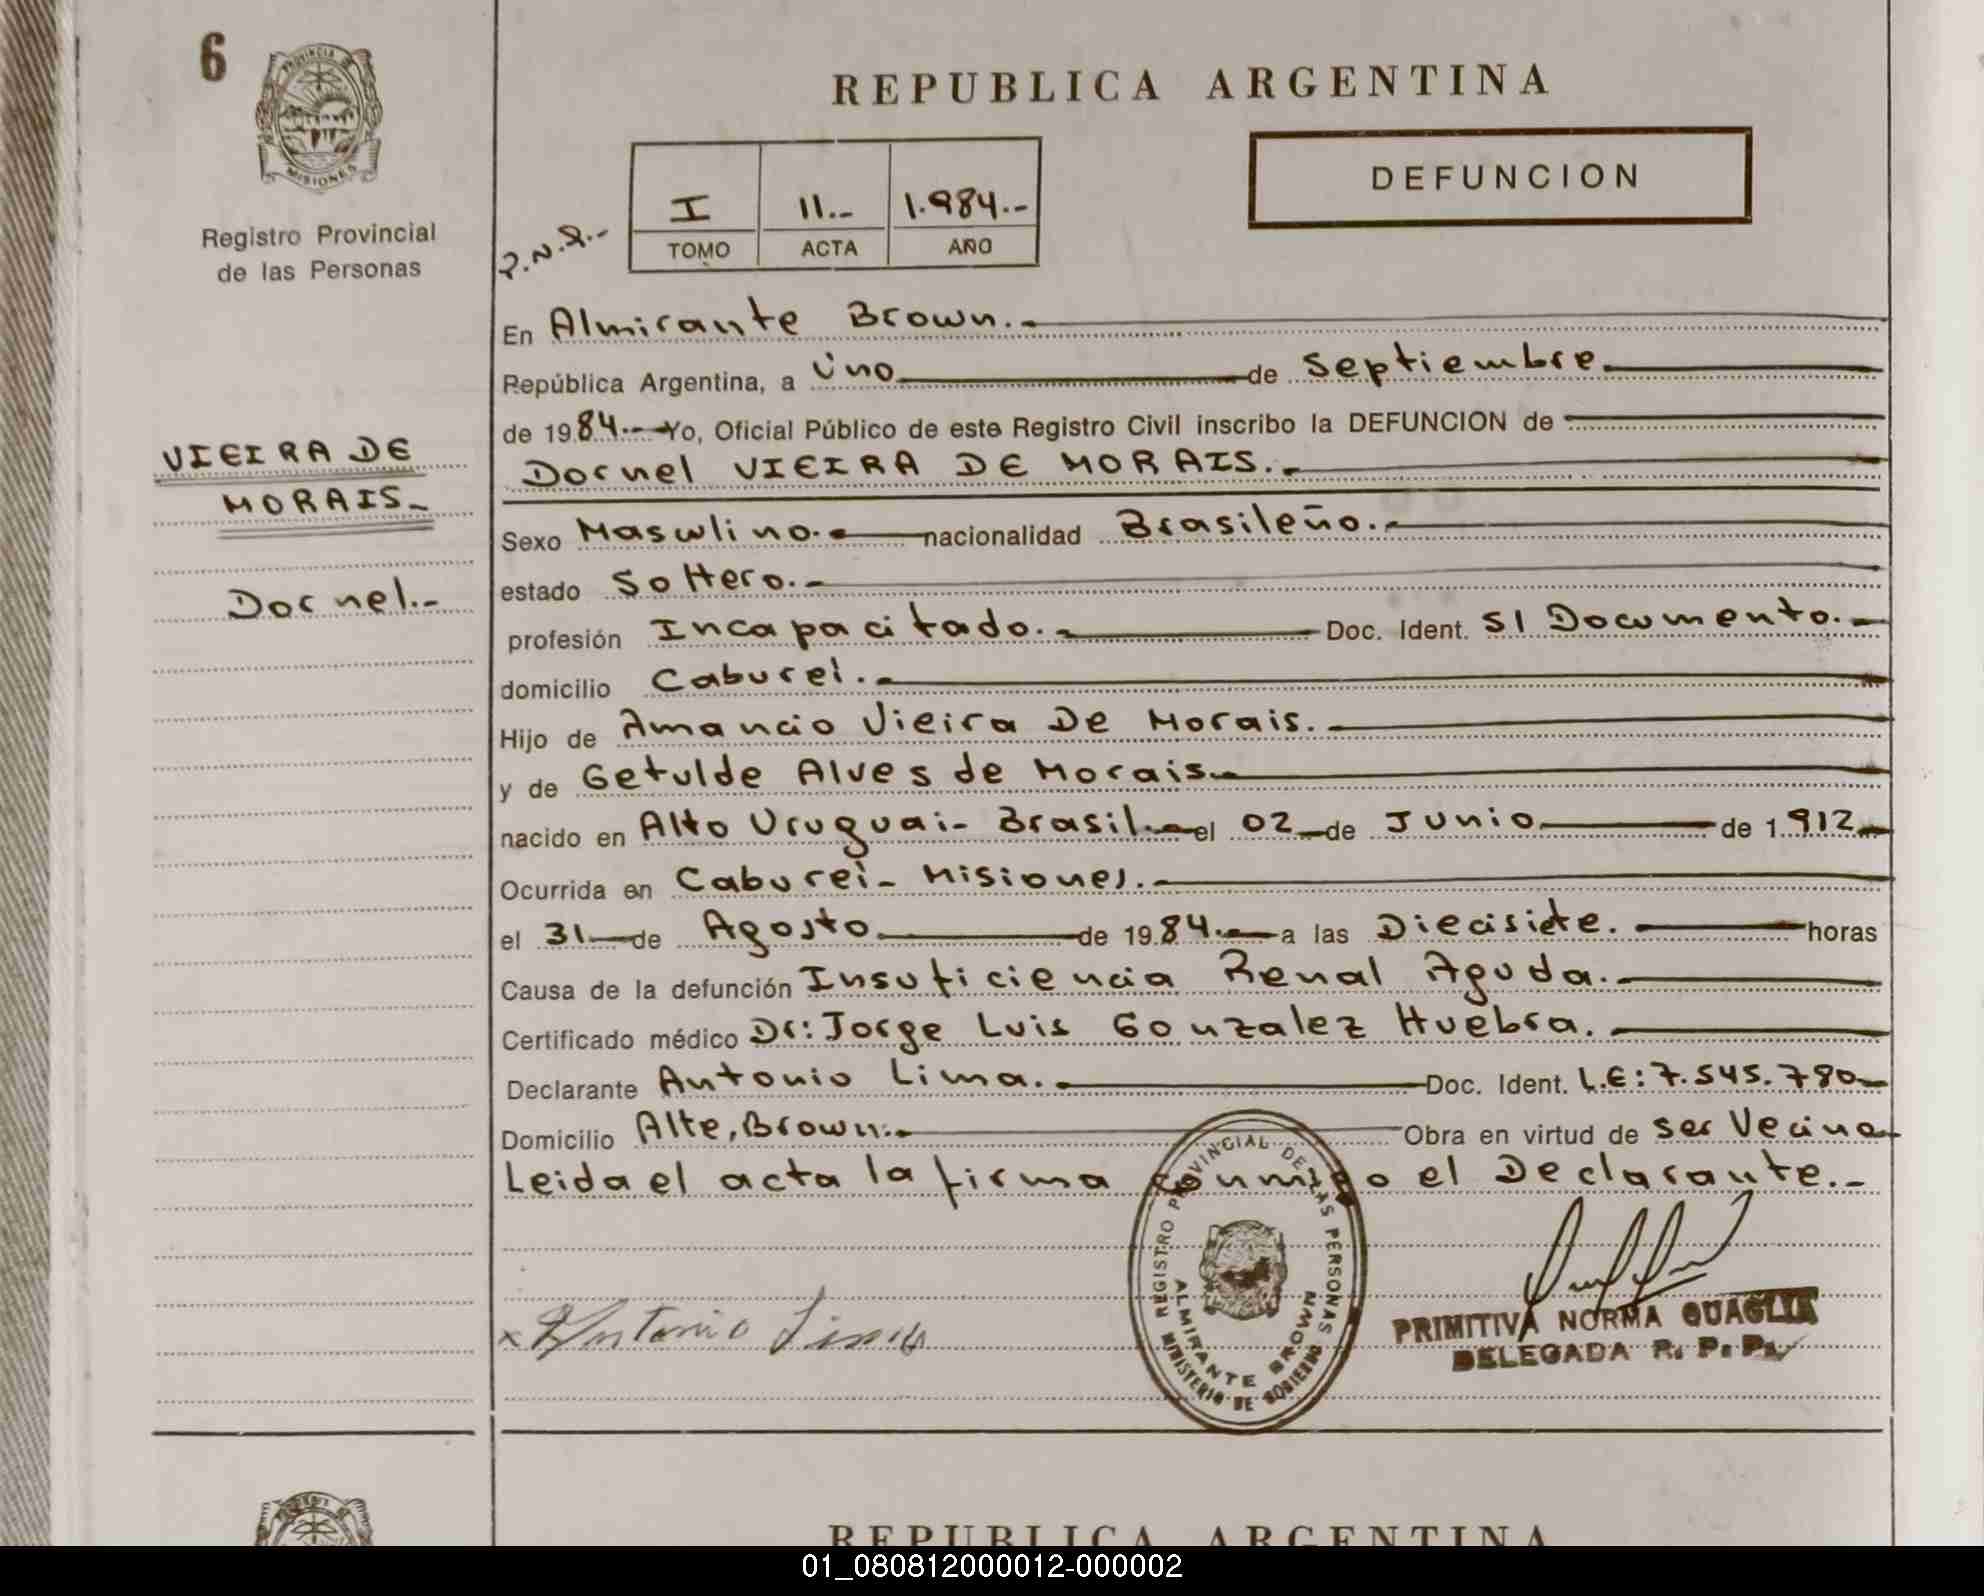 6
PROVINCIA DE
MISIONES
Registro Provincial
de las Personas
REPUBLICA ARGENTINA
DEFUNCION
I 11.- 1.984.-
TOMO ACTA AÑO
VIEIRA DE
MORAIS.-
Dornel.-
En Almirante Brown.-
República Argentina, a Uno de Septiembre.
de 1984.- Yo, Oficial Público de este Registro Civil inscribo la DEFUNCION de
Dornel VIEIRA DE MORAIS.-
Sexo Masculino.- nacionalidad Brasileño.-
estado Soltero.-
profesión Incapacitado.- Doc. Ident. S/ Documento.-
domicilio Cabureí.-
Hijo de Amancio Vieira De Morais.-
y de Getulde Alves de Morais.-
nacido en Alto Uruguai- Brasil.- el 02 de Junio de 1.912.-
Ocurrida en Cabureí- Misiones.-
el 31 de Agosto de 1984.- a las Diecisiete. horas
Causa de la defunción Insuficiencia Renal Aguda.-
Certificado médico Dr: Jorge Luis Gonzalez Huebra.
Declarante Antonio Lima.- Doc. Ident. L.E: 7.545.780-
Domicilio Alte, Brown.- Obra en virtud de ser Vecino
Leida el acta la firma conmigo el Declarante.-
x Antonio Lima
REGISTRO PROVINCIAL DE LAS PERSONAS
ALMIRANTE BROWN
MINISTERIO DE GOBIERNO
PRIMITIVA NORMA QUAGLIA
DELEGADA R. P. P.
REPUBLICA ARGENTINA
01_080812000012-000002